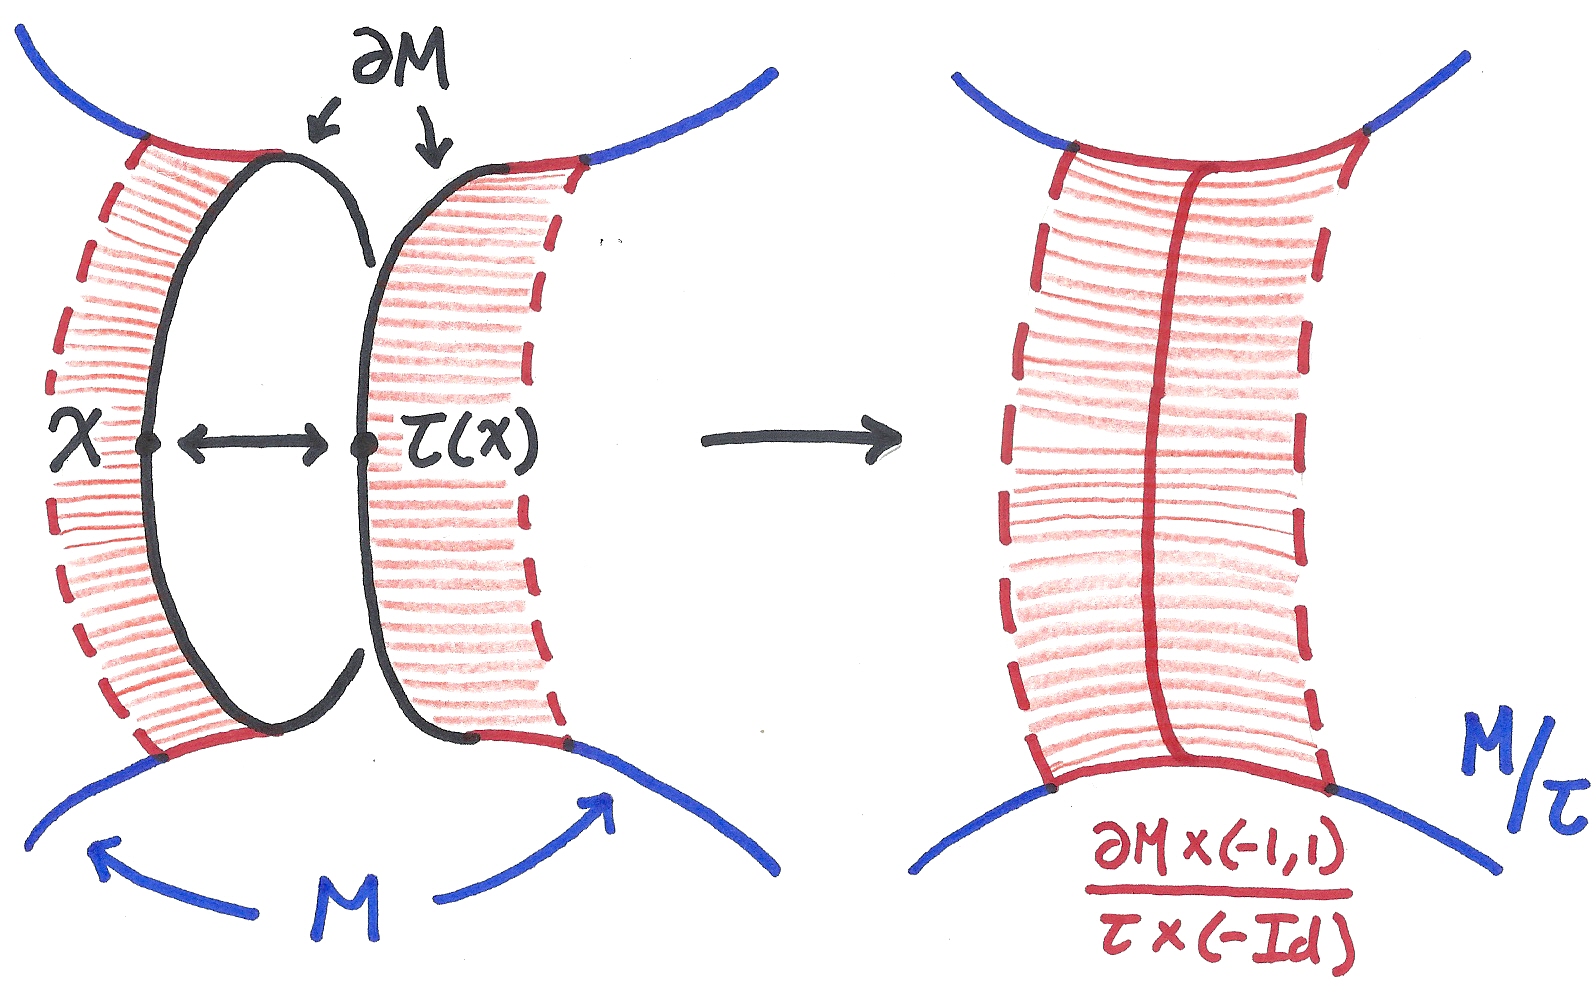 ∂M
x
τ(x)
M
M/τ
∂M × (-1,1)
τ × (-Id)